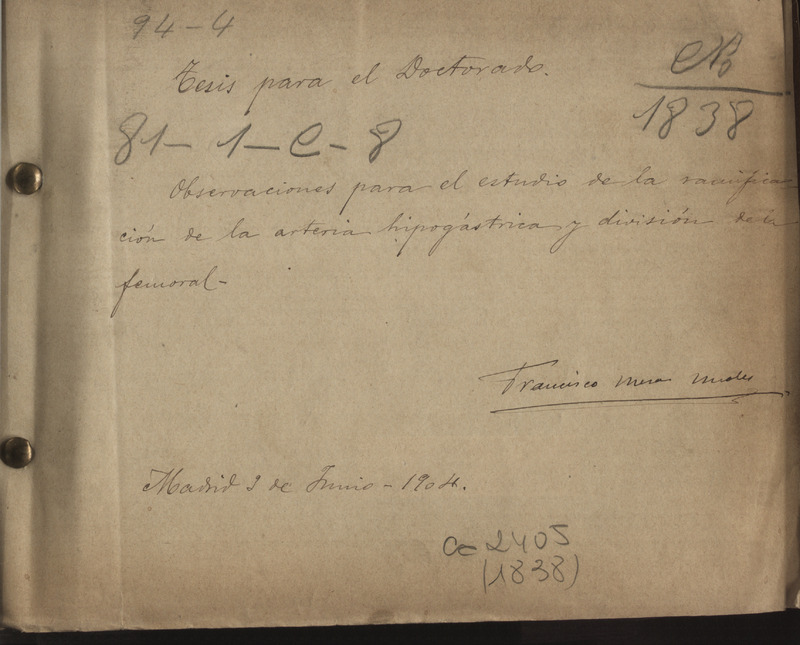 94-4
Tesis para el Doctorado.
81-1-C-8
1838
Observaciones para el estudio de la ramifica
ción de la arteria hipogástrica y división de la
femoral-
Francisco
Madrid 3 de Junio - 1904.
Ca 2405
(1838)